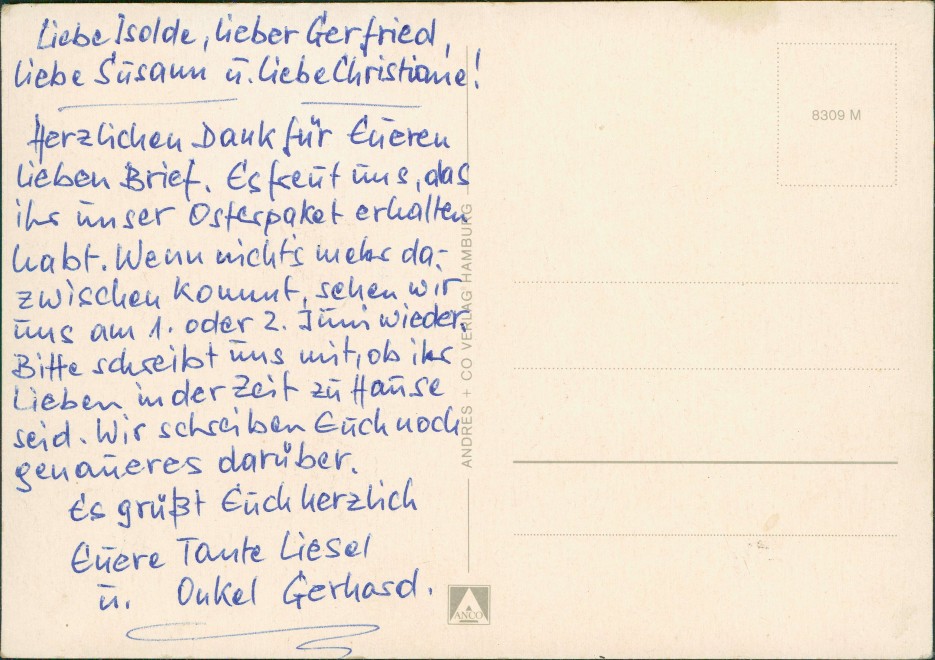 Liebe Isolde, lieber Gerfried,
liebe Susann u. liebe Christiane!
Herzlichen Dank für Eueren
lieben Brief. Es freut uns, das
ihr unser Osterpaket erhalten
habt. Wenn nichts mehr da-
zwischen kommt, sehen wir
uns am 1. oder 2. Juni wieder.
Bitte schreibt uns mit, ob ihr
Lieben in der Zeit zu Hause
seid. Wir schreiben Euch noch
genaueres darüber.
Es grüßt Euch herzlich
Euere Tante Liesel
u. Onkel Gerhard.
ANDRES + CO VERLAG HAMBURG
ANCO
8309 M